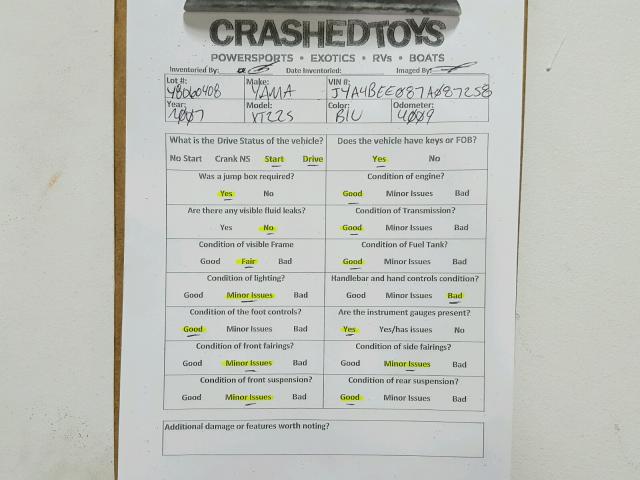 CRASHEDTOYS
POWERSPORTS • EXOTICS • RVs • BOATS
Inventoried By: Date Inventoried: Imaged By:
Lot #: Make: VIN #:
48060408 YAMA JYA4BEE087A087258
Year: Model: Color: Odometer:
2007 XT225 BlU 4009
What is the Drive Status of the vehicle? Does the vehicle have keys or FOB?
No Start Crank NS Start Drive Yes No
Was a jump box required? Condition of engine?
Yes No Good Minor Issues Bad
Are there any visible fluid leaks? Condition of Transmission?
Yes No Good Minor Issues Bad
Condition of visible Frame Condition of Fuel Tank?
Good Fair Bad Good Minor Issues Bad
Condition of lighting? Handlebar and hand controls condition?
Good Minor Issues Bad Good Minor Issues Bad
Condition of the foot controls? Are the instrument gauges present?
Good Minor Issues Bad Yes Yes/has issues No
Condition of front fairings? Condition of side fairings?
Good Minor Issues Bad Good Minor Issues Bad
Condition of front suspension? Condition of rear suspension?
Good Minor Issues Bad Good Minor Issues Bad
Additional damage or features worth noting?